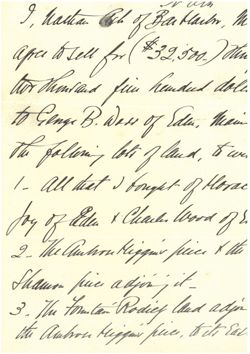 I, Nathan Ash of Bar Harbor, M
agree to sell for ($32,500.) thir
two thousand five hundred doll
to George B. Wass of Eden, Main
the following lots of land, to wi
1 - All that I bought of Horac
Joy of Eden & Charles Wood of E
2 - The Ambrose Higgins piece & the
Shannon piece adjoing it -
3 - The Fountain Rodick land adjoi
the Ambrose Higgins piece, to its Eas